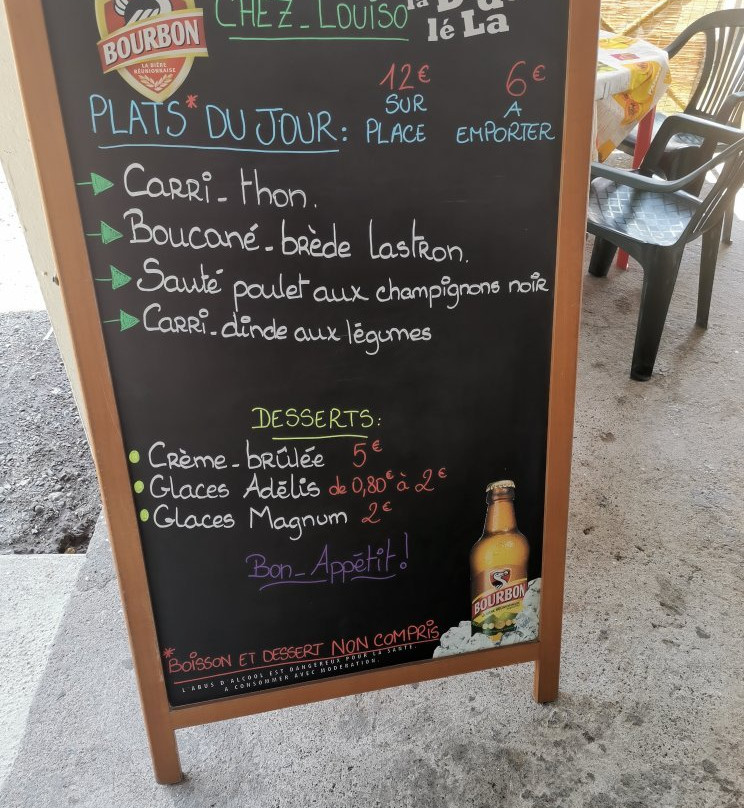 BOURBON
LA BIÈRE
RÉUNIONNAISE
CHEZ - LOUISO
la
lé La
12€ SUR PLACE
6€ A EMPORTER
PLATS* DU JOUR:
CARRi - thon.
Boucané - brède lastron.
Sauté poulet aux champignons noir
CARRi - dinde aux légumes
DESSERTS:
Crème - brûlée 5€
Glaces Adélis de 0,80€ à 2€
Glaces Magnum 2€
Bon - Appétit!
BOURBON
*BOISSON ET DESSERT NON COMPRIS
L'ABUS D'ALCOOL EST DANGEREUX POUR LA SANTÉ.
A CONSOMMER AVEC MODERATION.